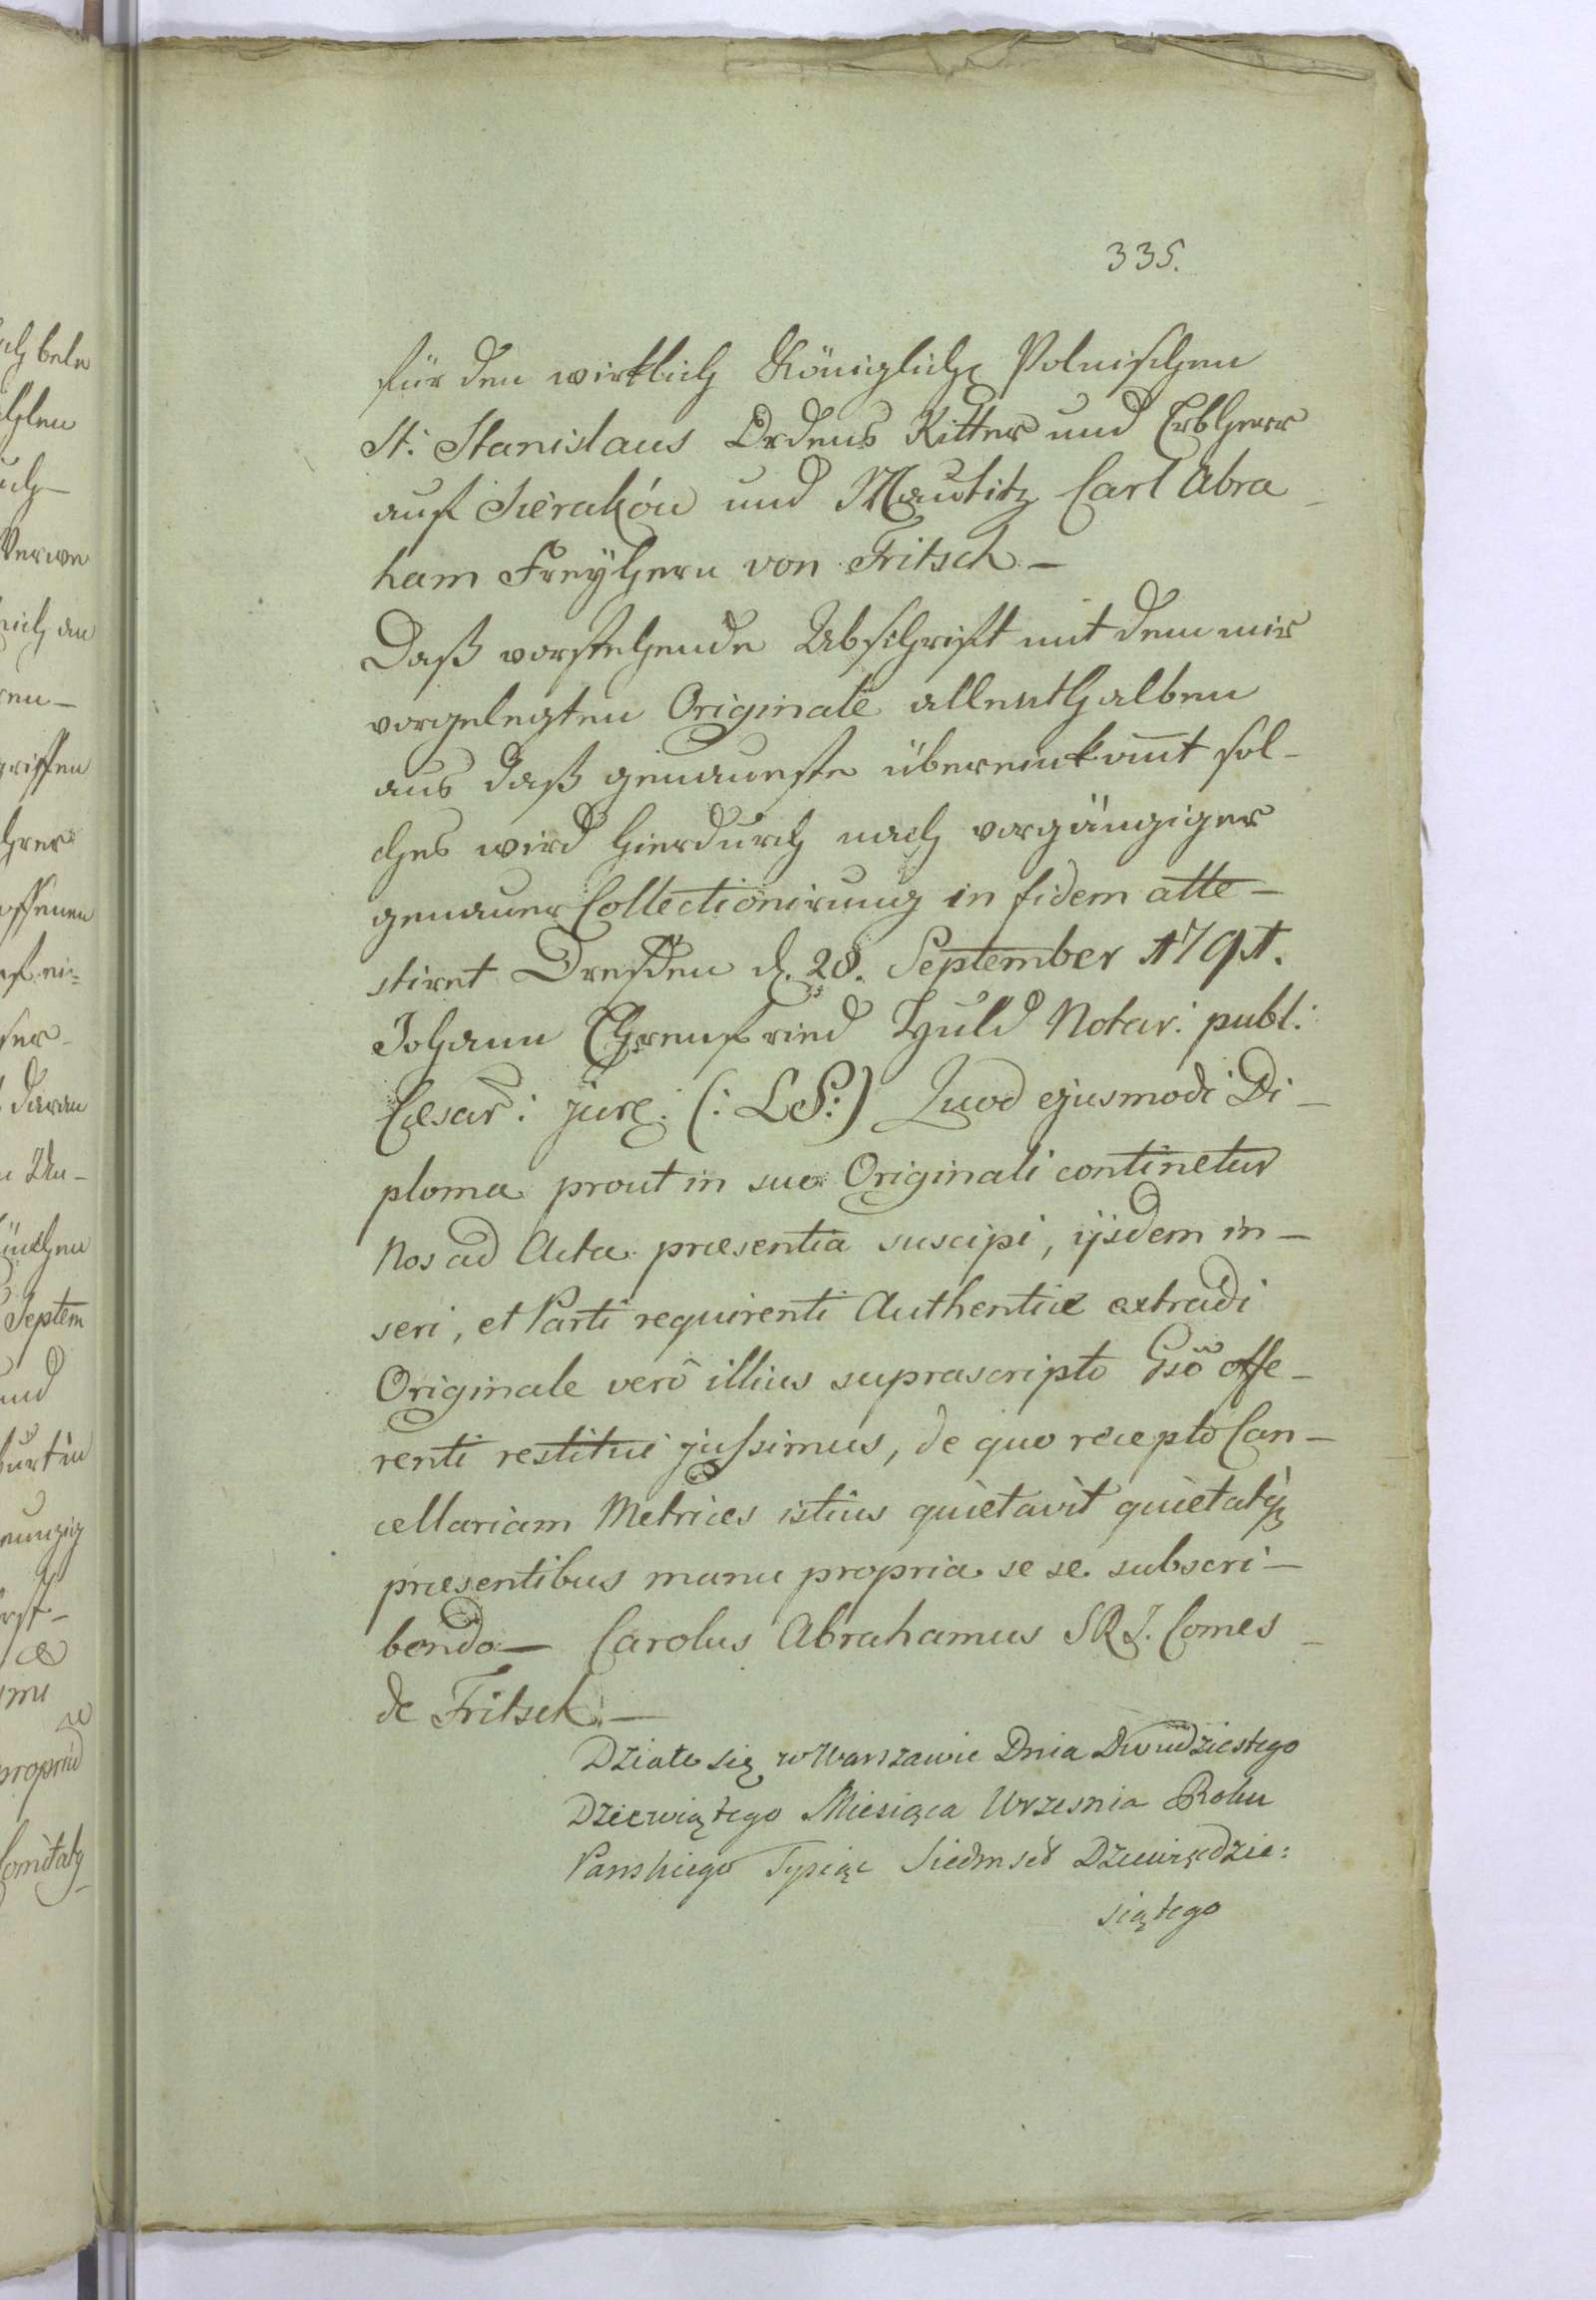 335.
für den wirklich Königliche Polnischen
St: Stanislaus Ordens Ritter und Erbherr
auf Sierakóu und Mautitz Carl Abra-
ham Freyhern von Fritsch. —
Daß vorstehende Abschrift mit dem mir
vorgelegten Originale allenthalben
aus daß genaueste übereinkom̄t sol-
ches wird hierdurch nach vorgängiger
genauer Collectionirung in fidem atte-
stiret Dresden d. 28. September 1791.
Johann Ehrenfried Huld Notar: publ:
Cæsar: jure: (: LS:) Quod ejusmodi Di-
ploma prout in suo Originali continetur
Nos ad Acta præsentia suscipi, ijsdem in-
seri, et Parti requirenti Authentice extradi
Originale verô illius suprascripto Gsō offe-
renti restitui jussimus, de quo recepto Can-
cellariam Metrices istius quietavit quietatq
præsentibus manu propria se se subscri-
bendo — Carolus Abrahamus SRI. Comes
de Fritsch. —
Działo się w Warszawie Dnia Dwudziestego
Dziewiątego Miesiąca Wrzesnia Roku
Panskiego Tysiąc Siedmset Dziewiędzie:
siątego
ch bele
hlen
uch
Verwe
mich an
ren-
griffen
hrer
offenen
uf ei=
ser
daran
n Un-
ünchen
Septem
und
burt in
eunzig
proprid
Comitatq